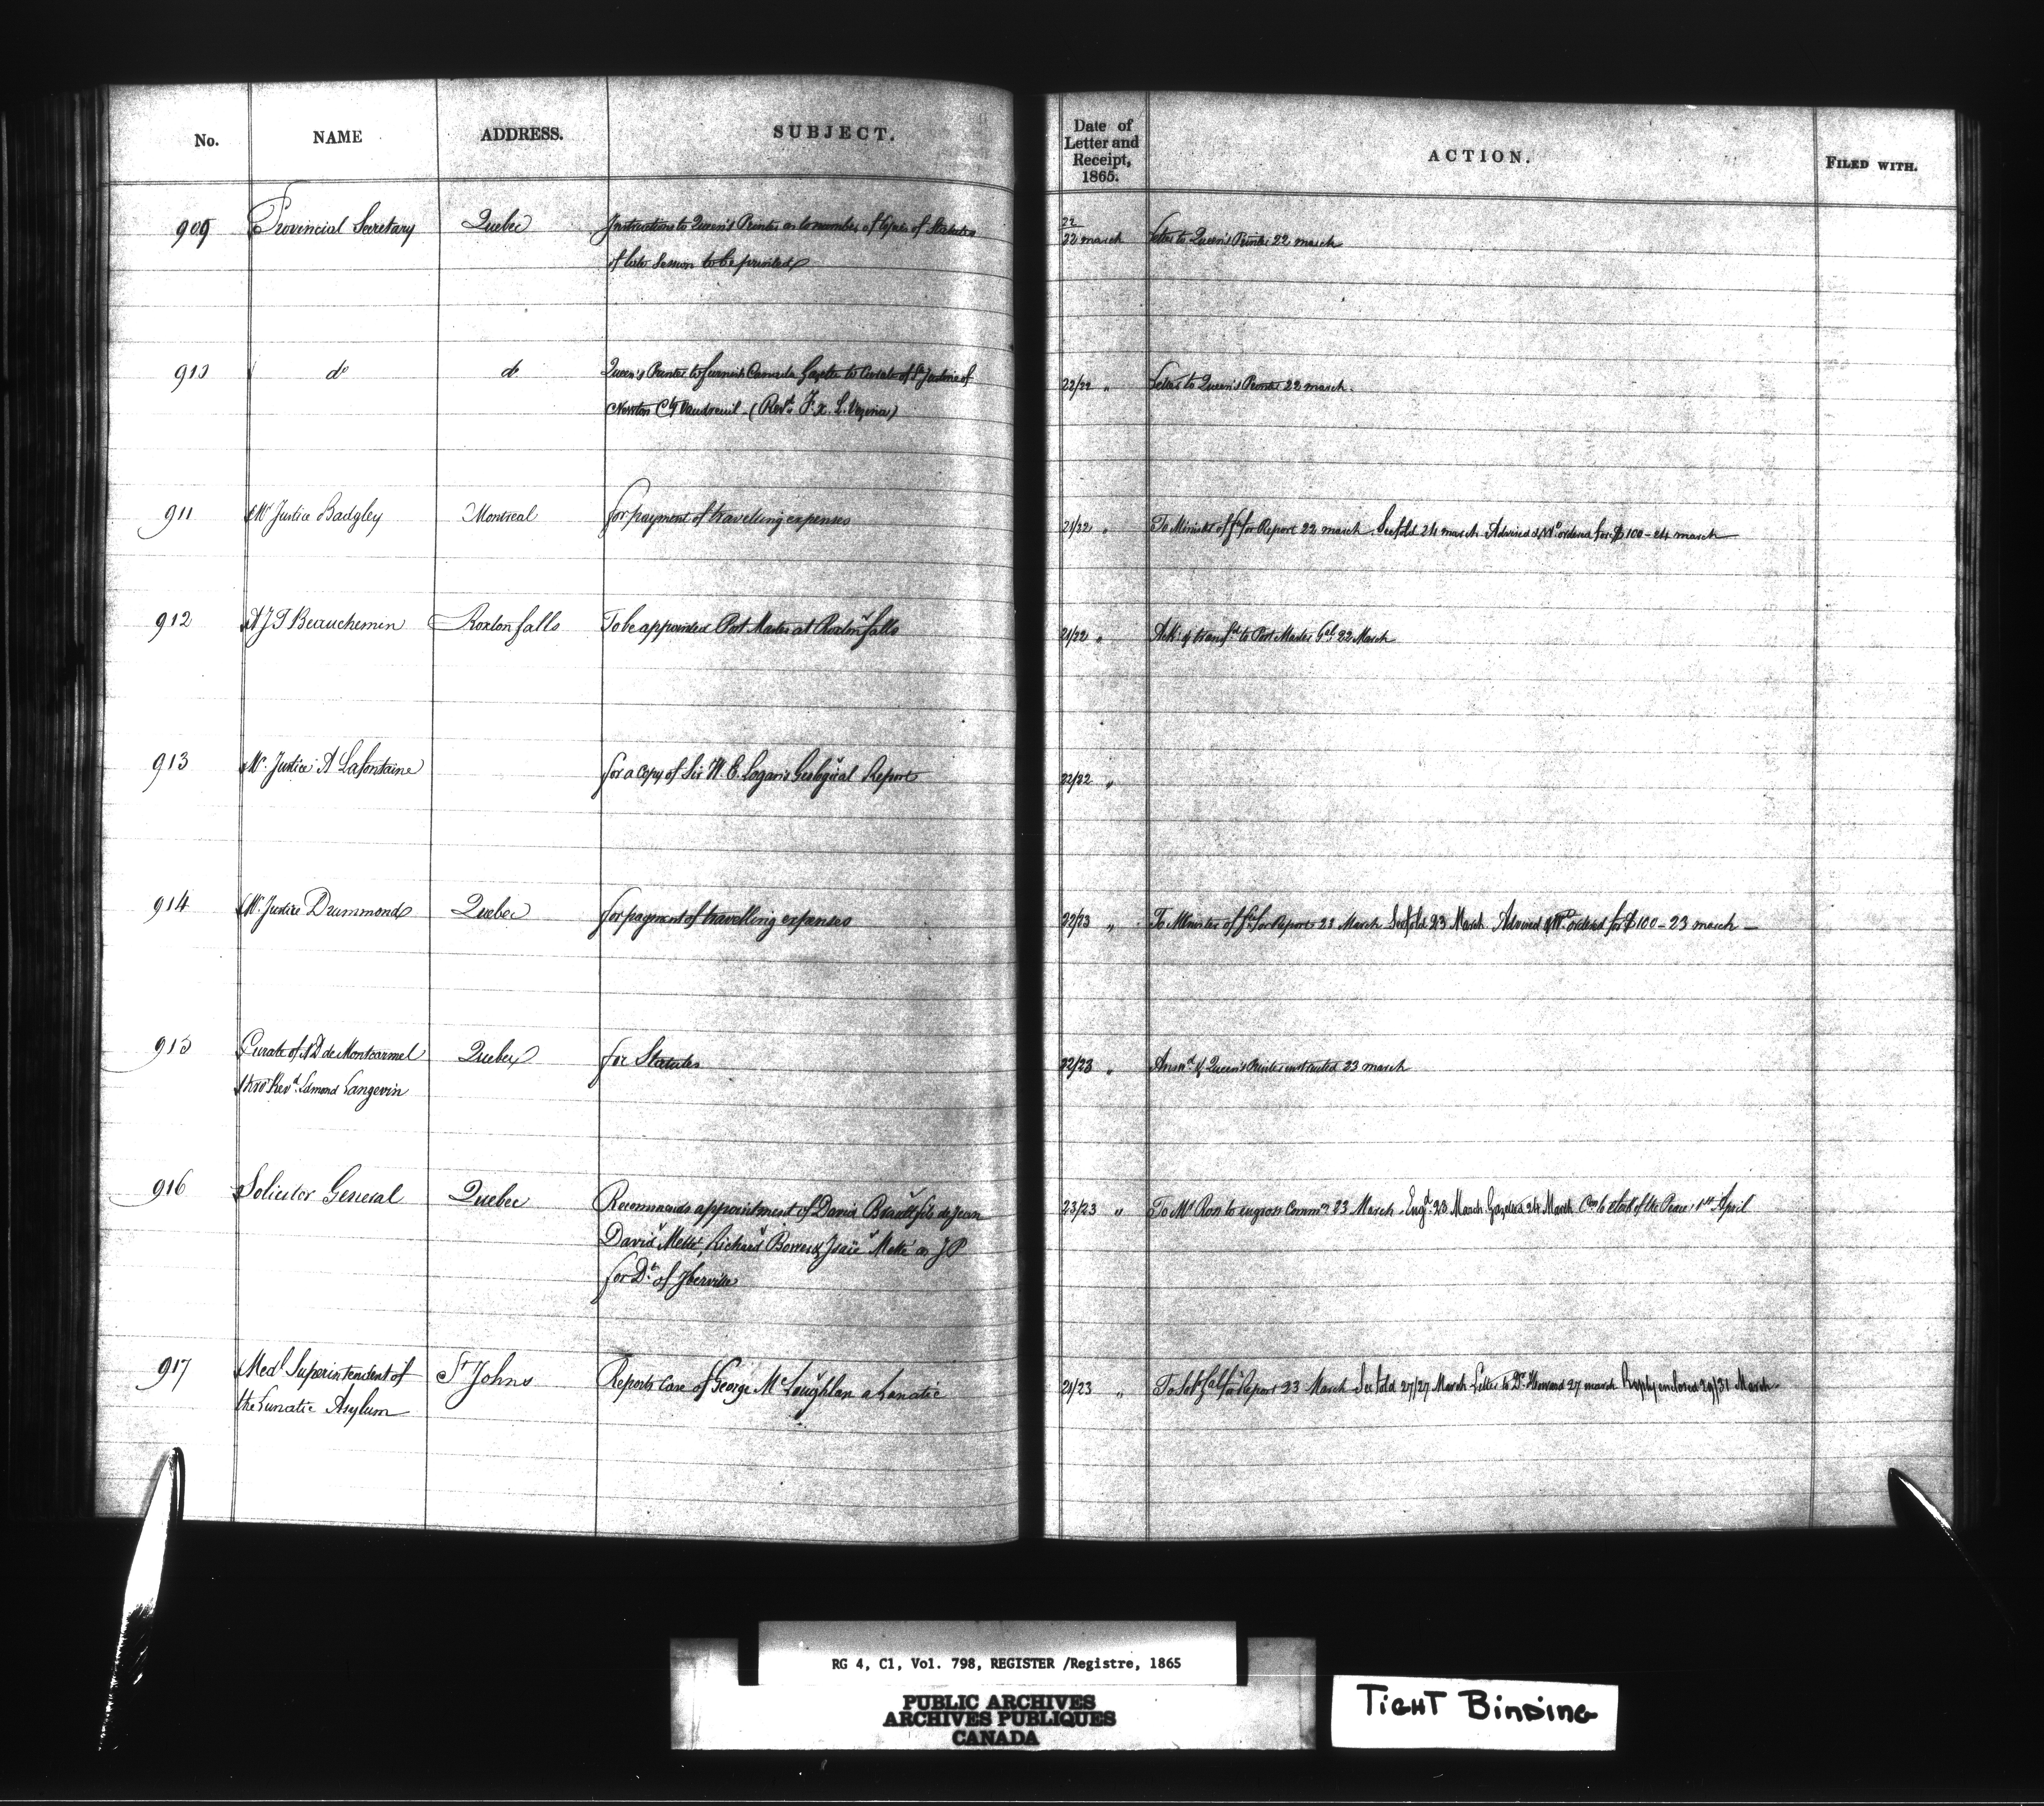 No. NAME ADDRESS. SUBJECT. Date of Letter and Receipt, 1865. ACTION. FILED WITH.
909 Provincial Secretary Quebec Instructions to Queen's Printer as to number of Copies of Statutes 22/22 march Letter to Queen's Printer 22 march
of late Session to be printed
910 do do Queen's Printer to furnish Canada Gazette to Curate of St Justine of 22/22 " Letter to Queen's Printer 22 march.
Newton Cy Vaudreuil - (Revd. F. X. L. Vezina)
911 Mr Justice Badgley Montreal for payment of travelling expenses 21/22 " To Minister of for Report 22 march. See fold 24 march Advised & Wt. ordered for $100 - 24 march
912 A J T Beauchemin Roxton falls To be appointed Post Master at Roxton falls 21/22 " Ack: & transfd to Post Master Gel: 22 March
913 Mr. Justice A Lafontaine for a copy of Sir W. E. Logan's Geological Report 22/22 "
914 Mr. Justice Drummond Quebec for payment of travelling expenses 22/23 " To Minister of for Report 23 March See fold 23 March. Advised & Wt. ordered for $100 - 23 march -
915 Curate of N D de Montcarmel Quebec for Statutes 22/23 " Answd & Queen's Printer instructed 23 march
thro' Revd. Edmond Langevin
916 Solicitor General Quebec Recommends appointment of David Brault fils de Jean 23/23 " To Mr Ross to engross Commn 23 March. Engd. 23 March Gazetted 24 March Com to Clerk of the Peace, 1st April
David Metté, Richard Bowes & Isaïe Metté as J P
for Dt. of Iberville
917 Medl Superintendent of St Johns Reports case of George McLoughlan a Lunatic 21/23 " To for Report 23 March See fold 27/27 March Letter to Dr. Howard 27 march Reply enclosed 29/31 March
the Lunatic Asylum
RG 4, C1, Vol. 798, REGISTER /Registre, 1865
PUBLIC ARCHIVES
ARCHIVES PUBLIQUES
CANADA
TIGHT BINDING